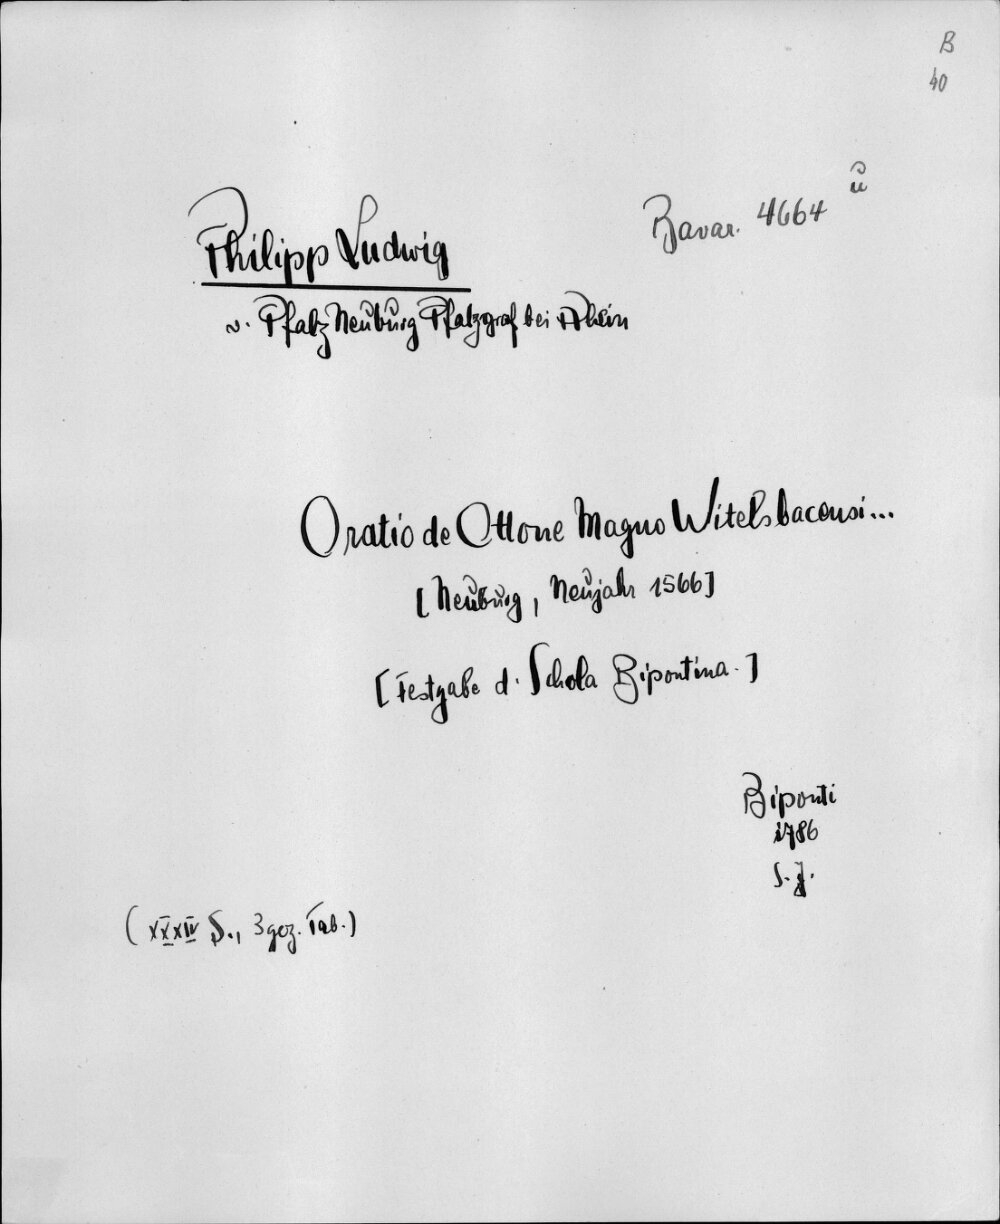 B
40
Bavar. 4664 ü
Philipp Ludwig
v. Pfalz Neuburg Pfalzgraf bei Rhein
Oratio de Ottone Magno Witelsbacensi...
[Neuburg, Neujahr 1566]
[Festgabe d. Schola Bipontina.]
Biponti
1786
S. J.
(XXXIV S., 3 gez. Tab.)